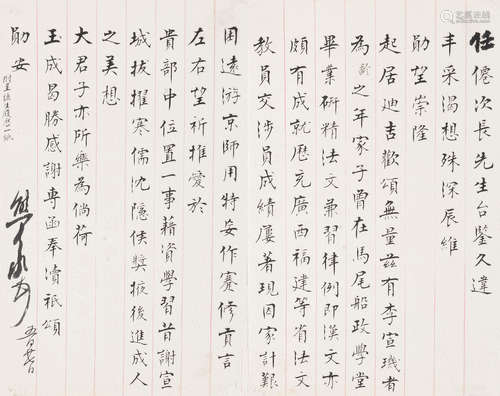 任僊次長先生台鑒久違
丰采渴想殊深辰維
勛望崇隆
起居迪吉歡頌無量茲有李宣璣者
為齡之年家子曾在馬尾船政學堂
畢業研精法文兼習律例即漢文亦
頗有成就歷充廣西福建等省法文
教員交涉員成績屢著現因家計艱
困遠游京師用特妄作蹇修貢言
左右望祈推愛於
貴部中位置一事藉資學習昔謝宣
城拔擢寒儒沈隱侯獎掖後進成人
之美想
大君子亦所樂為倘荷
玉成曷勝感謝專函奉瀆祇頌
勛安
附呈該生履歷一紙